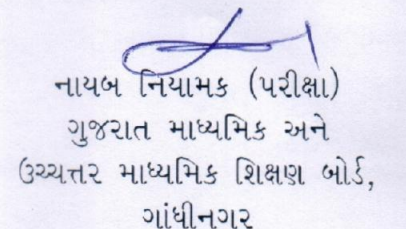 નાયબ નિયામક (પરીક્ષા)
ગુજરાત માધ્યમિક અને
ઉચ્ચત્તર માધ્યમિક શિક્ષણ બોર્ડ,
ગાંધીનગર